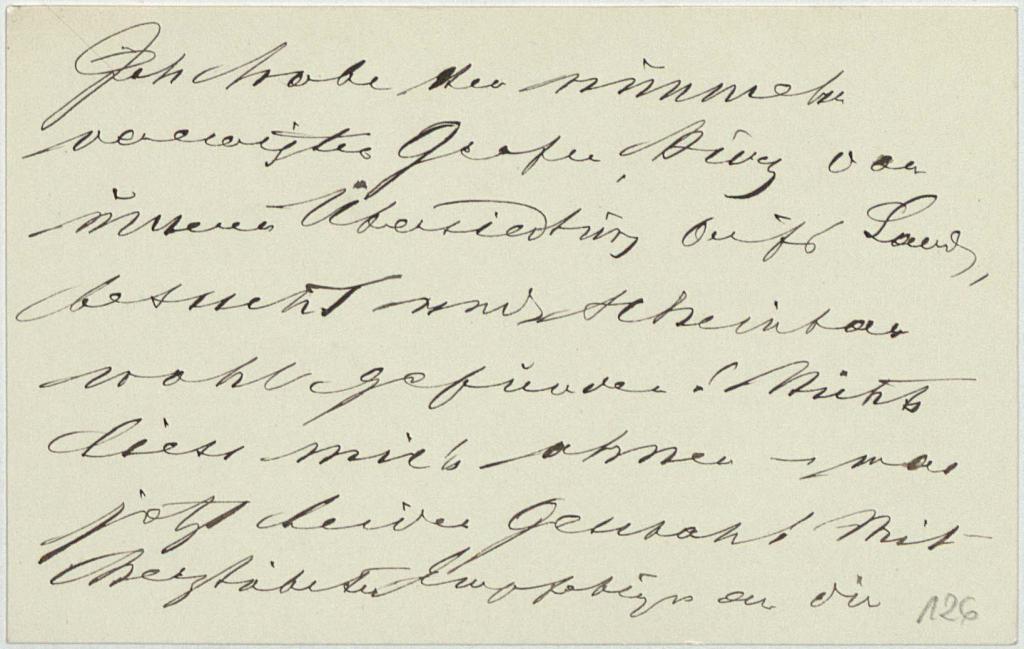 Ich habe den nunmehr
verewigten Grafen kurz vor
unserer Übersiedlung aufs Land,
besucht und scheinbar
wohl gefunden! Nichts
liess mich ahnen – was
jetzt leider geschah! Mit
herzlichsten Empfehlungen an die
126